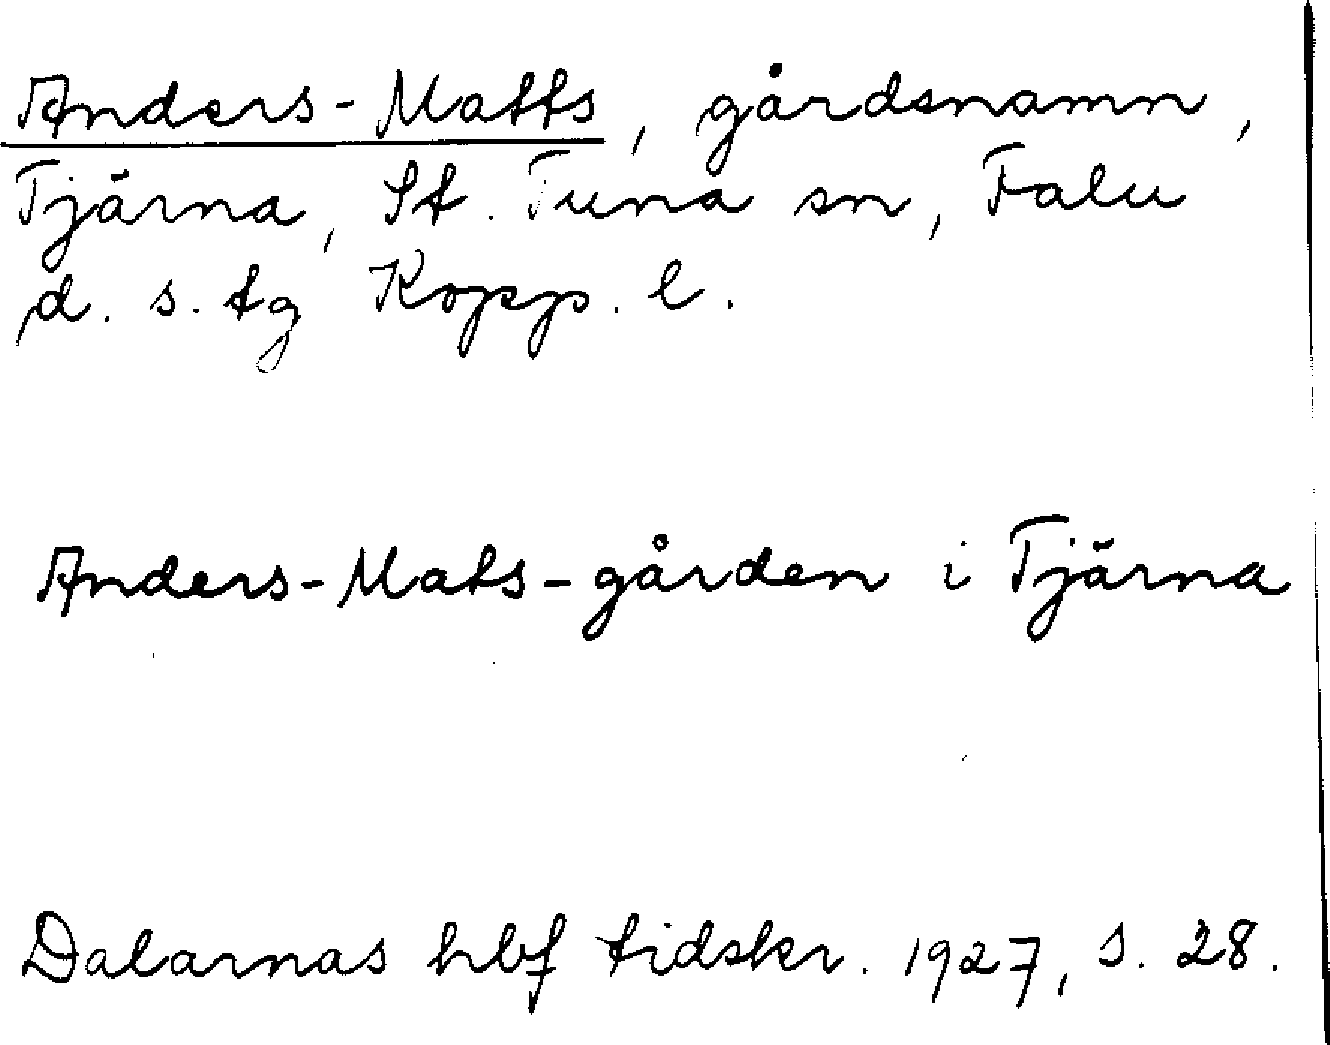 Anders-Matts, gårdsnamn,
Tjärna, St. Tuna sn, Falu
d. s. tg Kopp. l.
Anders-Mats-gården i Tjärna
Dalarnas hbf tidskr. 1927, s. 28.